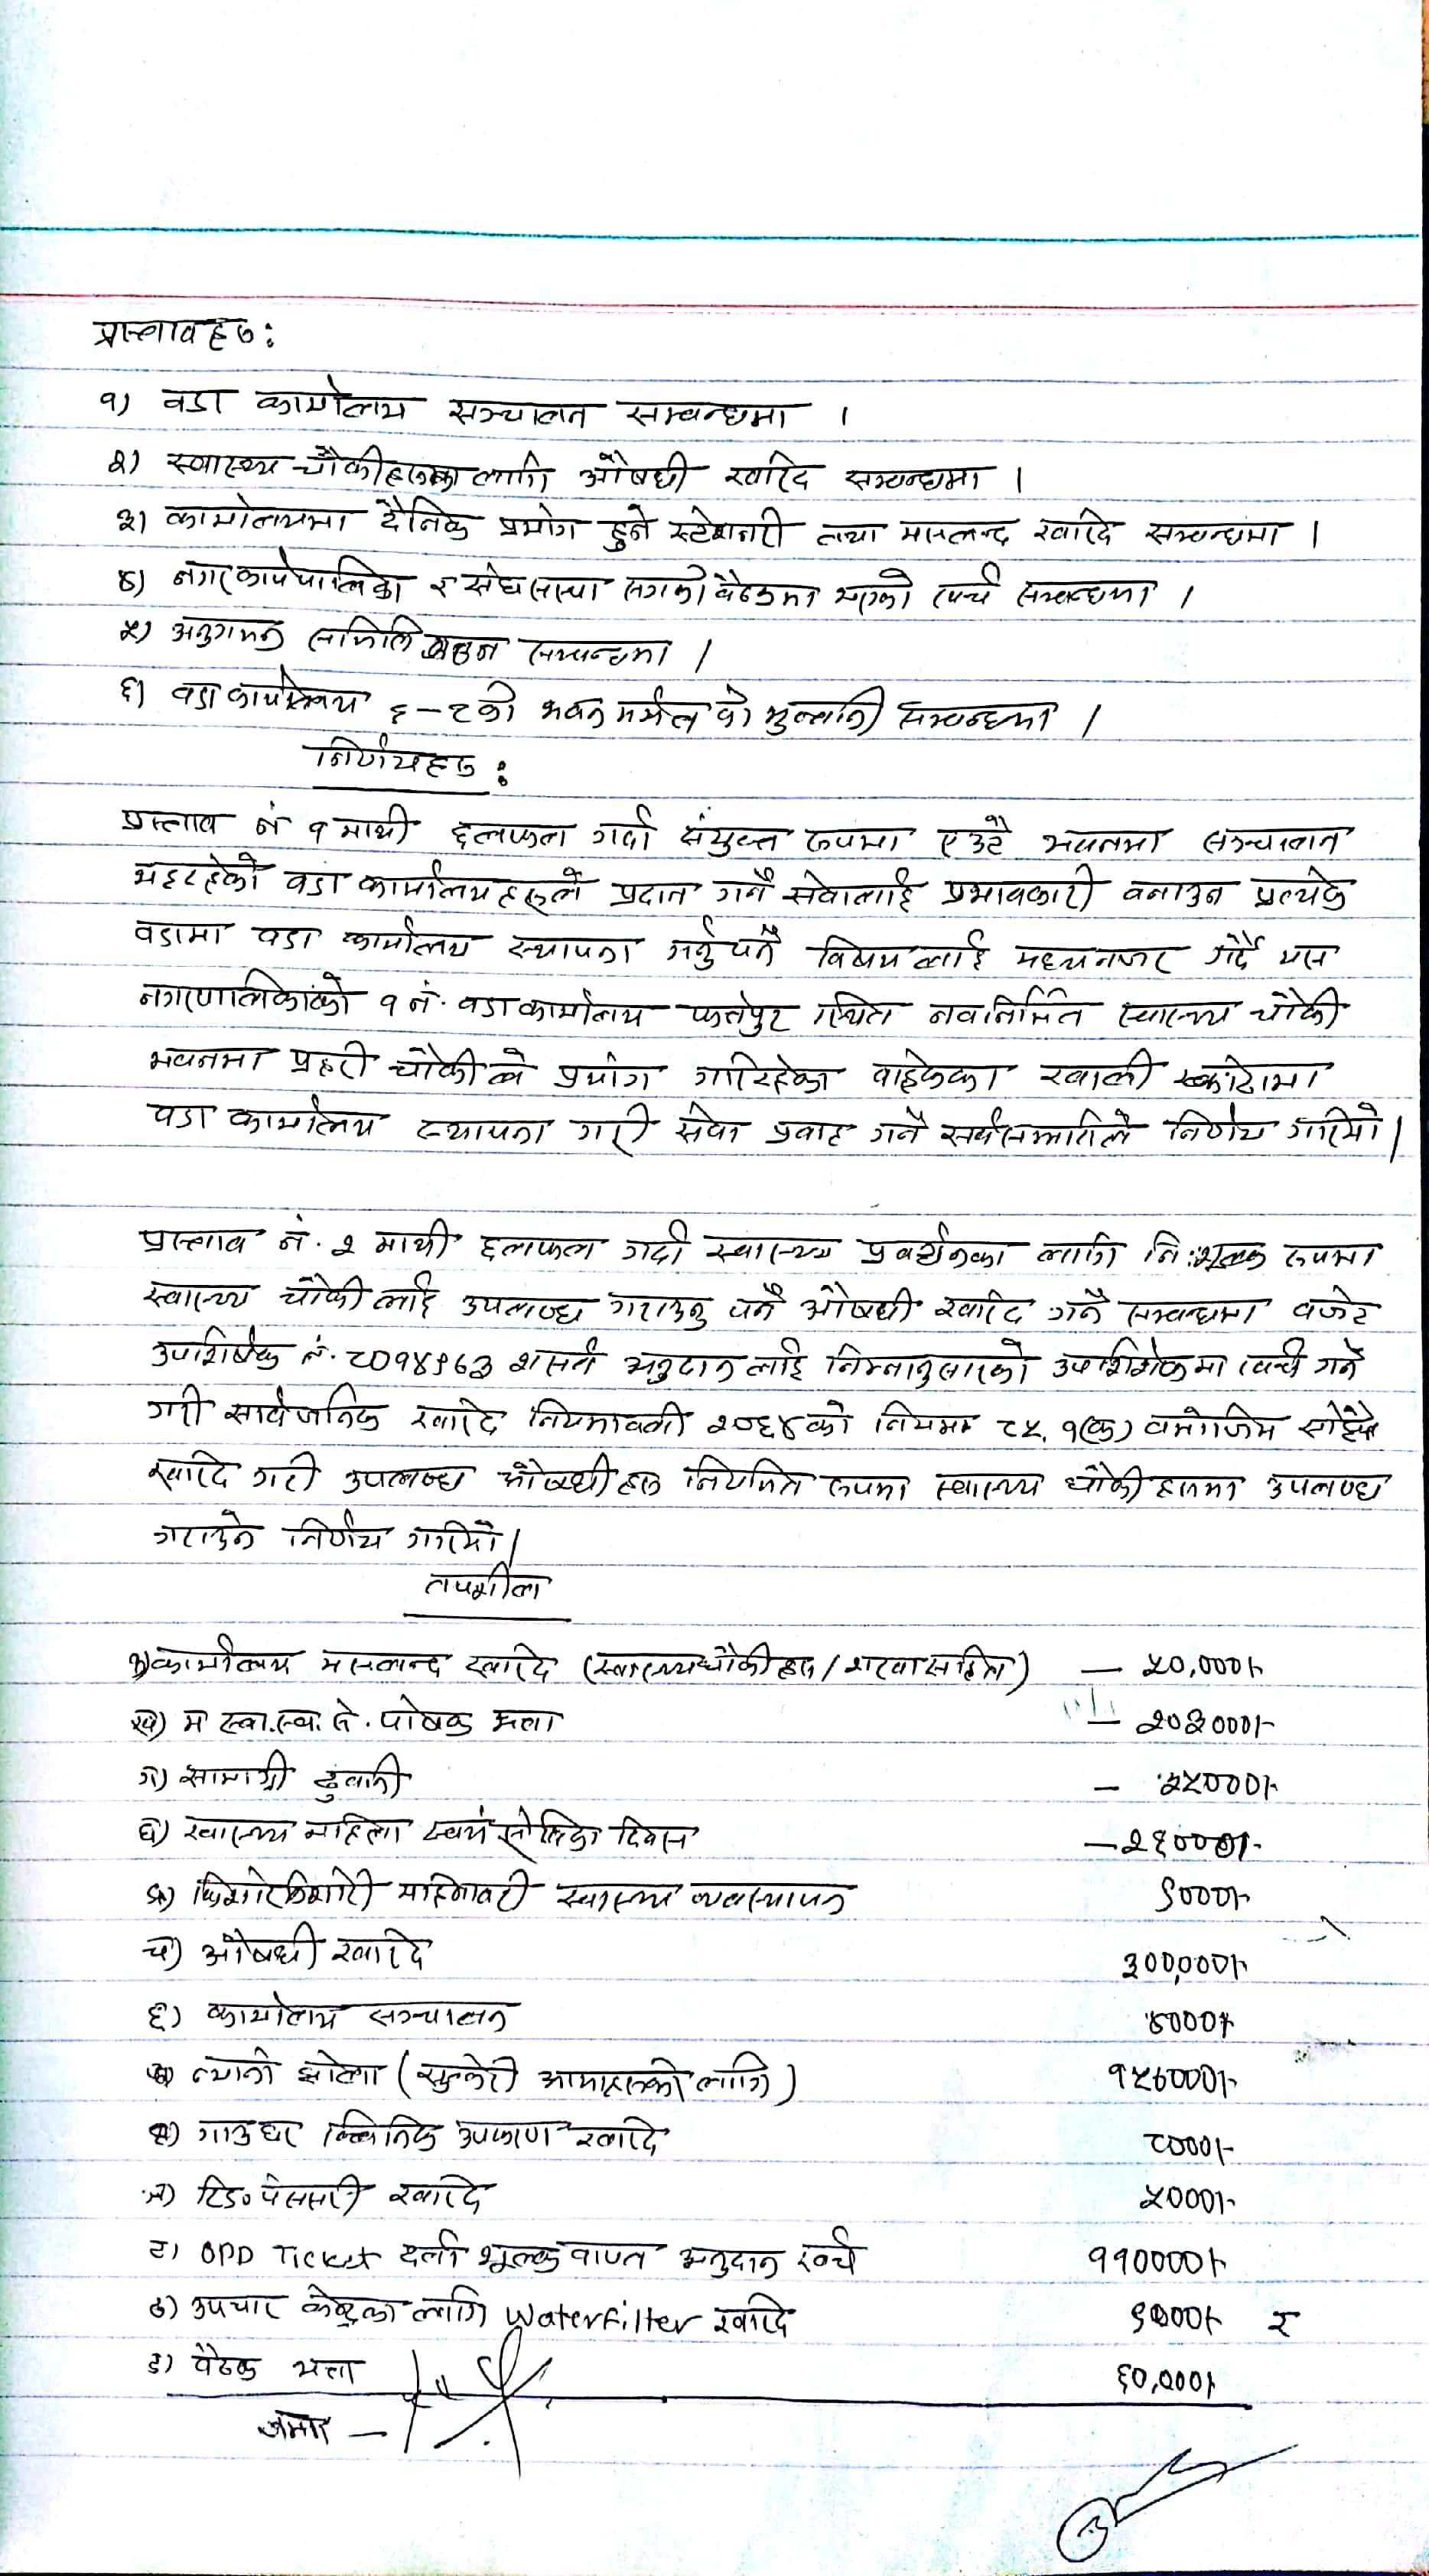 प्रस्तावहरु :
१) वडा कार्यालय सञ्चालन सम्बन्धमा ।
२) स्वास्थ्य चौकीहरुका लागि औषधी खरिद सम्बन्धमा ।
३) कार्यालयमा दैनिक प्रयोग हुने स्टेशनरी तथा मसलन्द खरिद सम्बन्धमा ।
४) नगरकार्यपालिका र संघसंस्था सगको बैठकमा भएको खर्च सम्बन्धमा ।
५) अनुगमन समिति गठन सम्बन्धमा ।
६) वडा कार्यालय ६-८ को भवन मर्मत को भुक्तानी सम्बन्धमा ।
निर्णयहरु :
प्रस्ताव नं १ माथी छलफल गर्दा संयुक्त रुपमा एउटै भवनमा सञ्चालन
भइरहेको वडा कार्यालयहरुले प्रदान गर्ने सेवालाई प्रभावकारी बनाउन प्रत्येक
वडामा वडा कार्यालय स्थापना गर्नु पर्ने विषय लाई मध्यनजर गर्दै यस
नगरपालिकाको १ नं. वडा कार्यालय फत्तेपुर स्थित नवनिर्मित स्वास्थ्य चौकी
भवनमा प्रहरी चौकीले प्रयोग गरिरहेका बाहेकका खाली कोठामा
वडा कार्यालय स्थापना गरी सेवा प्रवाह गर्ने सर्वसम्मतिले निर्णय गरियो ।
प्रस्ताव नं. २ माथी छलफल गर्दा स्वास्थ्य प्रवर्धनका लागि नि:शुल्क रुपमा
स्वास्थ्य चौकी लाई उपलब्ध गराउनु पर्ने औषधी खरिद गर्ने सम्बन्धमा बजेट
उपशिर्षक नं. ८०१४५६३ शसर्त अनुदान लाई निम्नानुसारको उपशिर्षकमा खर्च गर्ने
गरी सार्वजनिक खरिद नियमावली २०६४ को नियम ८५.१(क) बमोजिम सोझै
खरिद गरी उपलब्ध औषधी हरु नियमित रुपमा स्वास्थ्य चौकी हरुमा उपलब्ध
गराउने निर्णय गरियो ।
तपशील
कार्यालय मसलन्द खरिद (स्वास्थ्यचौकीहरु / शाखा सहित) — ५०,०००।-
ख) म स्वा.स्व. से. पोषक भत्ता — २०३०००।-
ग) सामाग्री ढुवानी — ३५०००।-
घ) स्वास्थ्य महिला स्वयं सेविका दिवस — २६०००।-
ङ) किशोरकिशोरी महिनावारी स्वास्थ्य व्यवस्थापन ९०००।-
च) औषधी खरिद ३००,०००।-
छ) कार्यालय सञ्चालन ४००००।-
न्यानो झोला (सुत्केरी आमाहरुको लागि) १५७०००।-
गाउघर क्लिनिक उपकरण खरिद ८०००।-
रिङ० पेससरी खरिद ५०००।-
ट) OPD Ticket दर्ता शूल्क वापत अनुदान खर्च ११००००।-
ठ) उपचार केन्द्रका लागि Waterfilter खरिद र
ड) बैठक भत्ता ६०,०००।-
जम्मा —